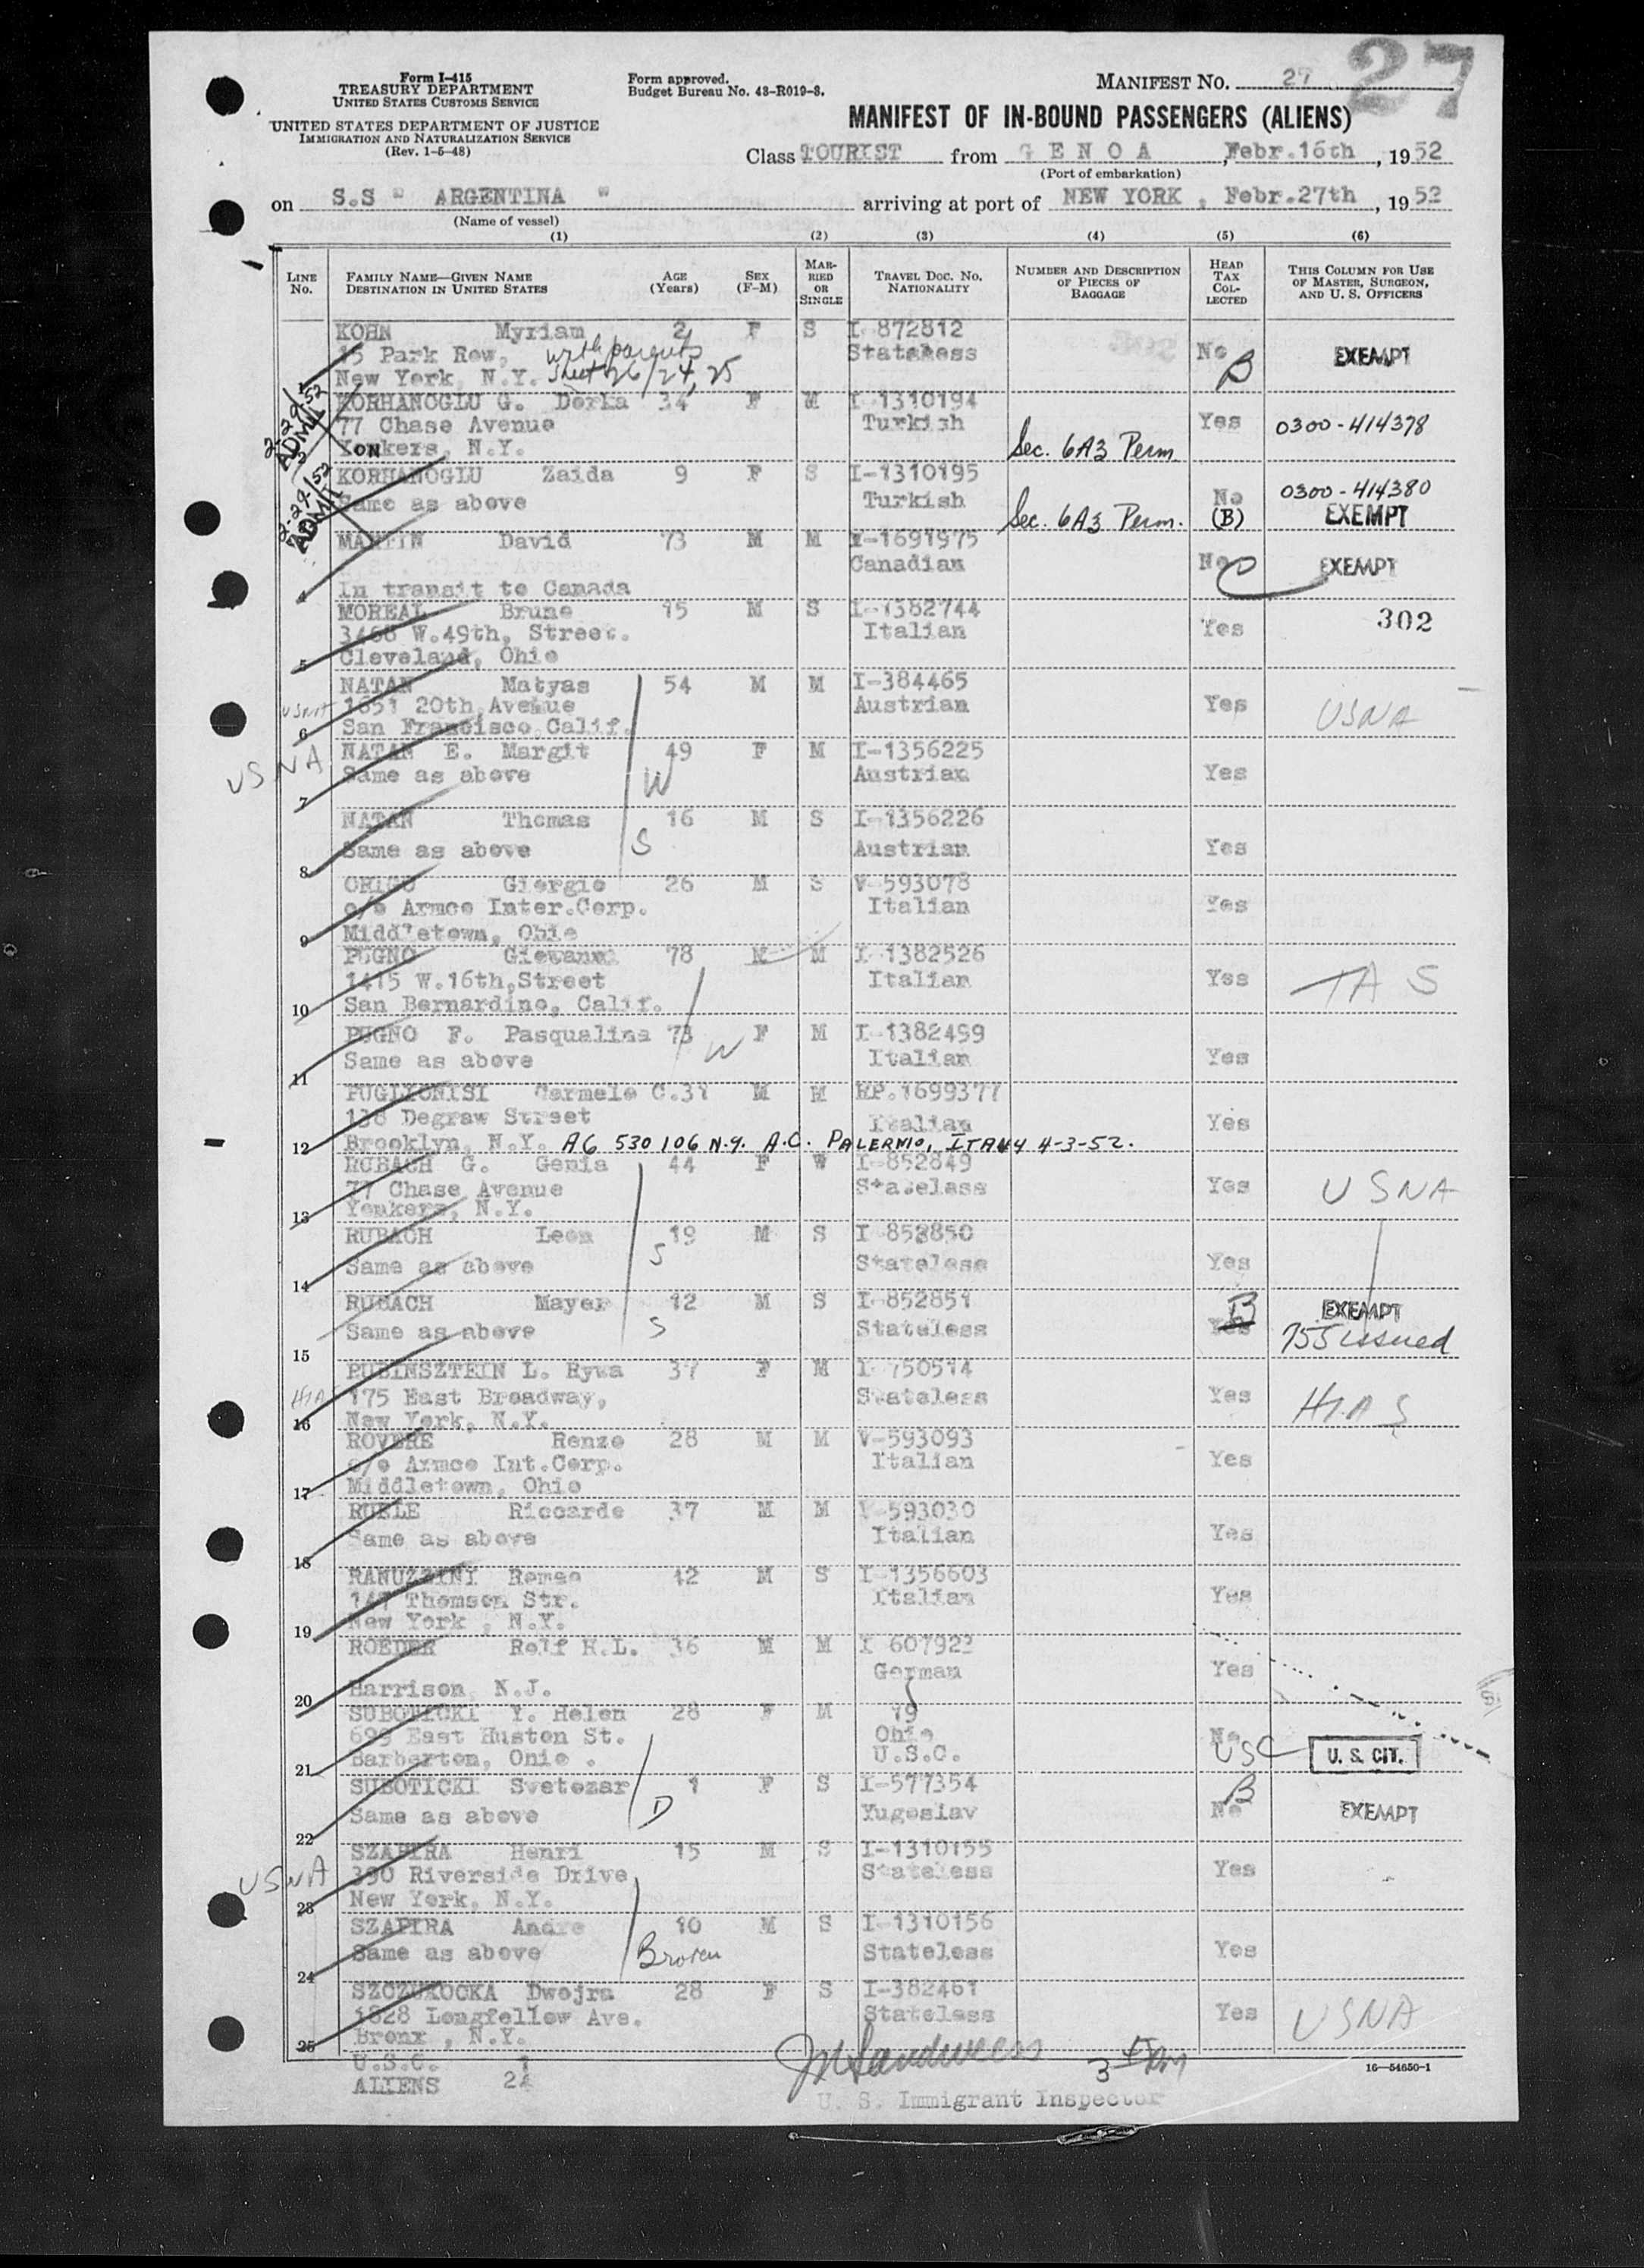 27
Form I-415
TREASURY DEPARTMENT
UNITED STATES CUSTOMS SERVICE
UNITED STATES DEPARTMENT OF JUSTICE
IMMIGRATION AND NATURALIZATION SERVICE
(Rev. 1-5-48)
Form approved.
Budget Bureau No. 43-R019-3.
MANIFEST NO. 27
MANIFEST OF IN-BOUND PASSENGERS (ALIENS)
Class TOURIST from GENOA, Febr.16th, 1952
(Port of embarkation)
on S.S " ARGENTINA " arriving at port of NEW YORK, Febr.27th, 1952
(Name of vessel)
(1) (2) (3) (4) (5) (6)
LINE No. FAMILY NAME—GIVEN NAME DESTINATION IN UNITED STATES AGE (Years) SEX (F-M) MARRIED OR SINGLE TRAVEL DOC. NO. NATIONALITY NUMBER AND DESCRIPTION OF PIECES OF BAGGAGE HEAD TAX COLLECTED THIS COLUMN FOR USE OF MASTER, SURGEON, AND U. S. OFFICERS
KOHN Myriam 2 F S I-872812
15 Park Row, with parents Stateless No B EXEMPT
New York, N.Y. Sheet 26/24,25
2-29-52 ADMIT
KORHANOGLU G. Dorka 34 F M I-1310194
77 Chase Avenue Turkish Yes 0300-414378
Yonkers, N.Y. Sec. 6A3 Perm.
2-29/52 ADMIT
KORHANOGLU Zaida 9 F S I-1310195
Same as above Turkish No 0300-414380
Sec. 6A3 Perm. (B) EXEMPT
MARTIN David 73 M M V-1691975
Canadian No C EXEMPT
4 In transit to Canada
MOREAL Brune 15 M S I-1382744 302
3468 W.49th, Street. Italian Yes
5 Cleveland, Ohio
NATAN Matyas 54 M M I-384465
USNA 1651 20th Avenue Austrian Yes USNA
6 San Francisco, Calif.
USNA NATAN E. Margit 49 F M I-1356225
Same as above W Austrian Yes
7
NATAN Thomas 16 M S I-1356226
Same as above S Austrian Yes
8
ORIGO Giorgio 26 M S V-593078
c/o Armco Inter.Corp. Italian Yes
9 Middletown, Ohio
PUGNO Giovanni 78 M M I-1382526
1415 W.16th, Street Italian Yes TAS
10 San Bernardino, Calif.
PUGNO F. Pasqualina 73 F M I-1382499
Same as above W Italian Yes
11
PUGLIONISI Carmelo C. 31 M M RP.1699377
138 Degraw Street Italian Yes
12 Brooklyn, N.Y. A6 530 106 N.Y. A.C. PALERMO, ITALY 4-3-52.
RUBACH G. Genia 44 F W I-852849
77 Chase Avenue Stateless Yes USNA
13 Yonkers, N.Y.
RUBACH Leon 19 M S I-852850
Same as above S Stateless Yes
14
RUBACH Mayer 12 M S I-852851 B EXEMPT
Same as above S Stateless Yes 755 issued
15
RUBINSZTEIN L. Rywa 37 F M I-750514
HIAS 175 East Broadway, Stateless Yes HIAS
16 New York, N.Y.
ROVERE Renzo 28 M M V-593093
c/o Armco Int.Corp. Italian Yes
17 Middletown, Ohio
RUELE Riccardo 37 M M V-593030
Same as above Italian Yes
18
RANUZZINI Romeo 42 M S I-1356603
147 Thomson Str. Italian Yes
19 New York, N.Y.
ROEDER Rolf H.L. 36 M M I-607923
German Yes
20 Harrison N.J.
SUBOTICKI Y. Helen 28 F M 19
699 East Huston St. Ohio No
21 Barberton, Ohio. U.S.C. USC U. S. CIT.
SUBOTICKI Svetozar 1 F S I-577354 B
Same as above D Yugoslav No EXEMPT
22
SZAPIRA Henri 15 M S I-1310155
USNA 390 Riverside Drive Stateless Yes
23 New York, N.Y.
SZAPIRA Andre 10 M S I-1310156
Same as above Stateless Yes
24
SZCZUKOCKA Dwojra 28 F S I-382461
1828 Longfellow Ave. Stateless Yes USNA
25 Bronx, N.Y.
U.S.C. 1
ALIENS 24
U. S. Immigrant Inspector
16—54650-1